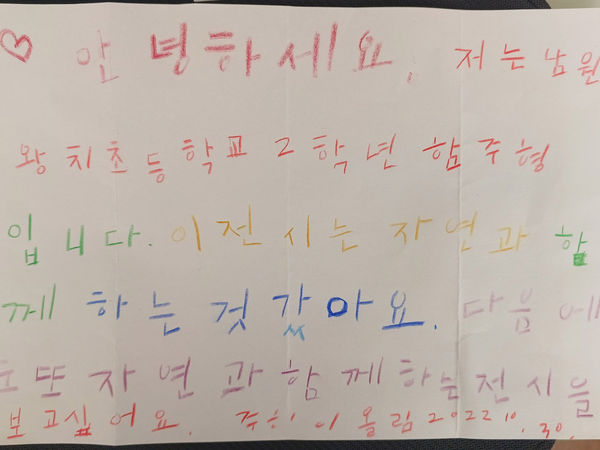 안녕하세요. 저는 남원
왕치초등학교 2학년 함주형
입니다. 이 전시는 자연과 함
께 하는 것 갔아요. 다음에
또 자연과 함께하는 전시을
보고싶어요. 이 올림 2022 10. 30.